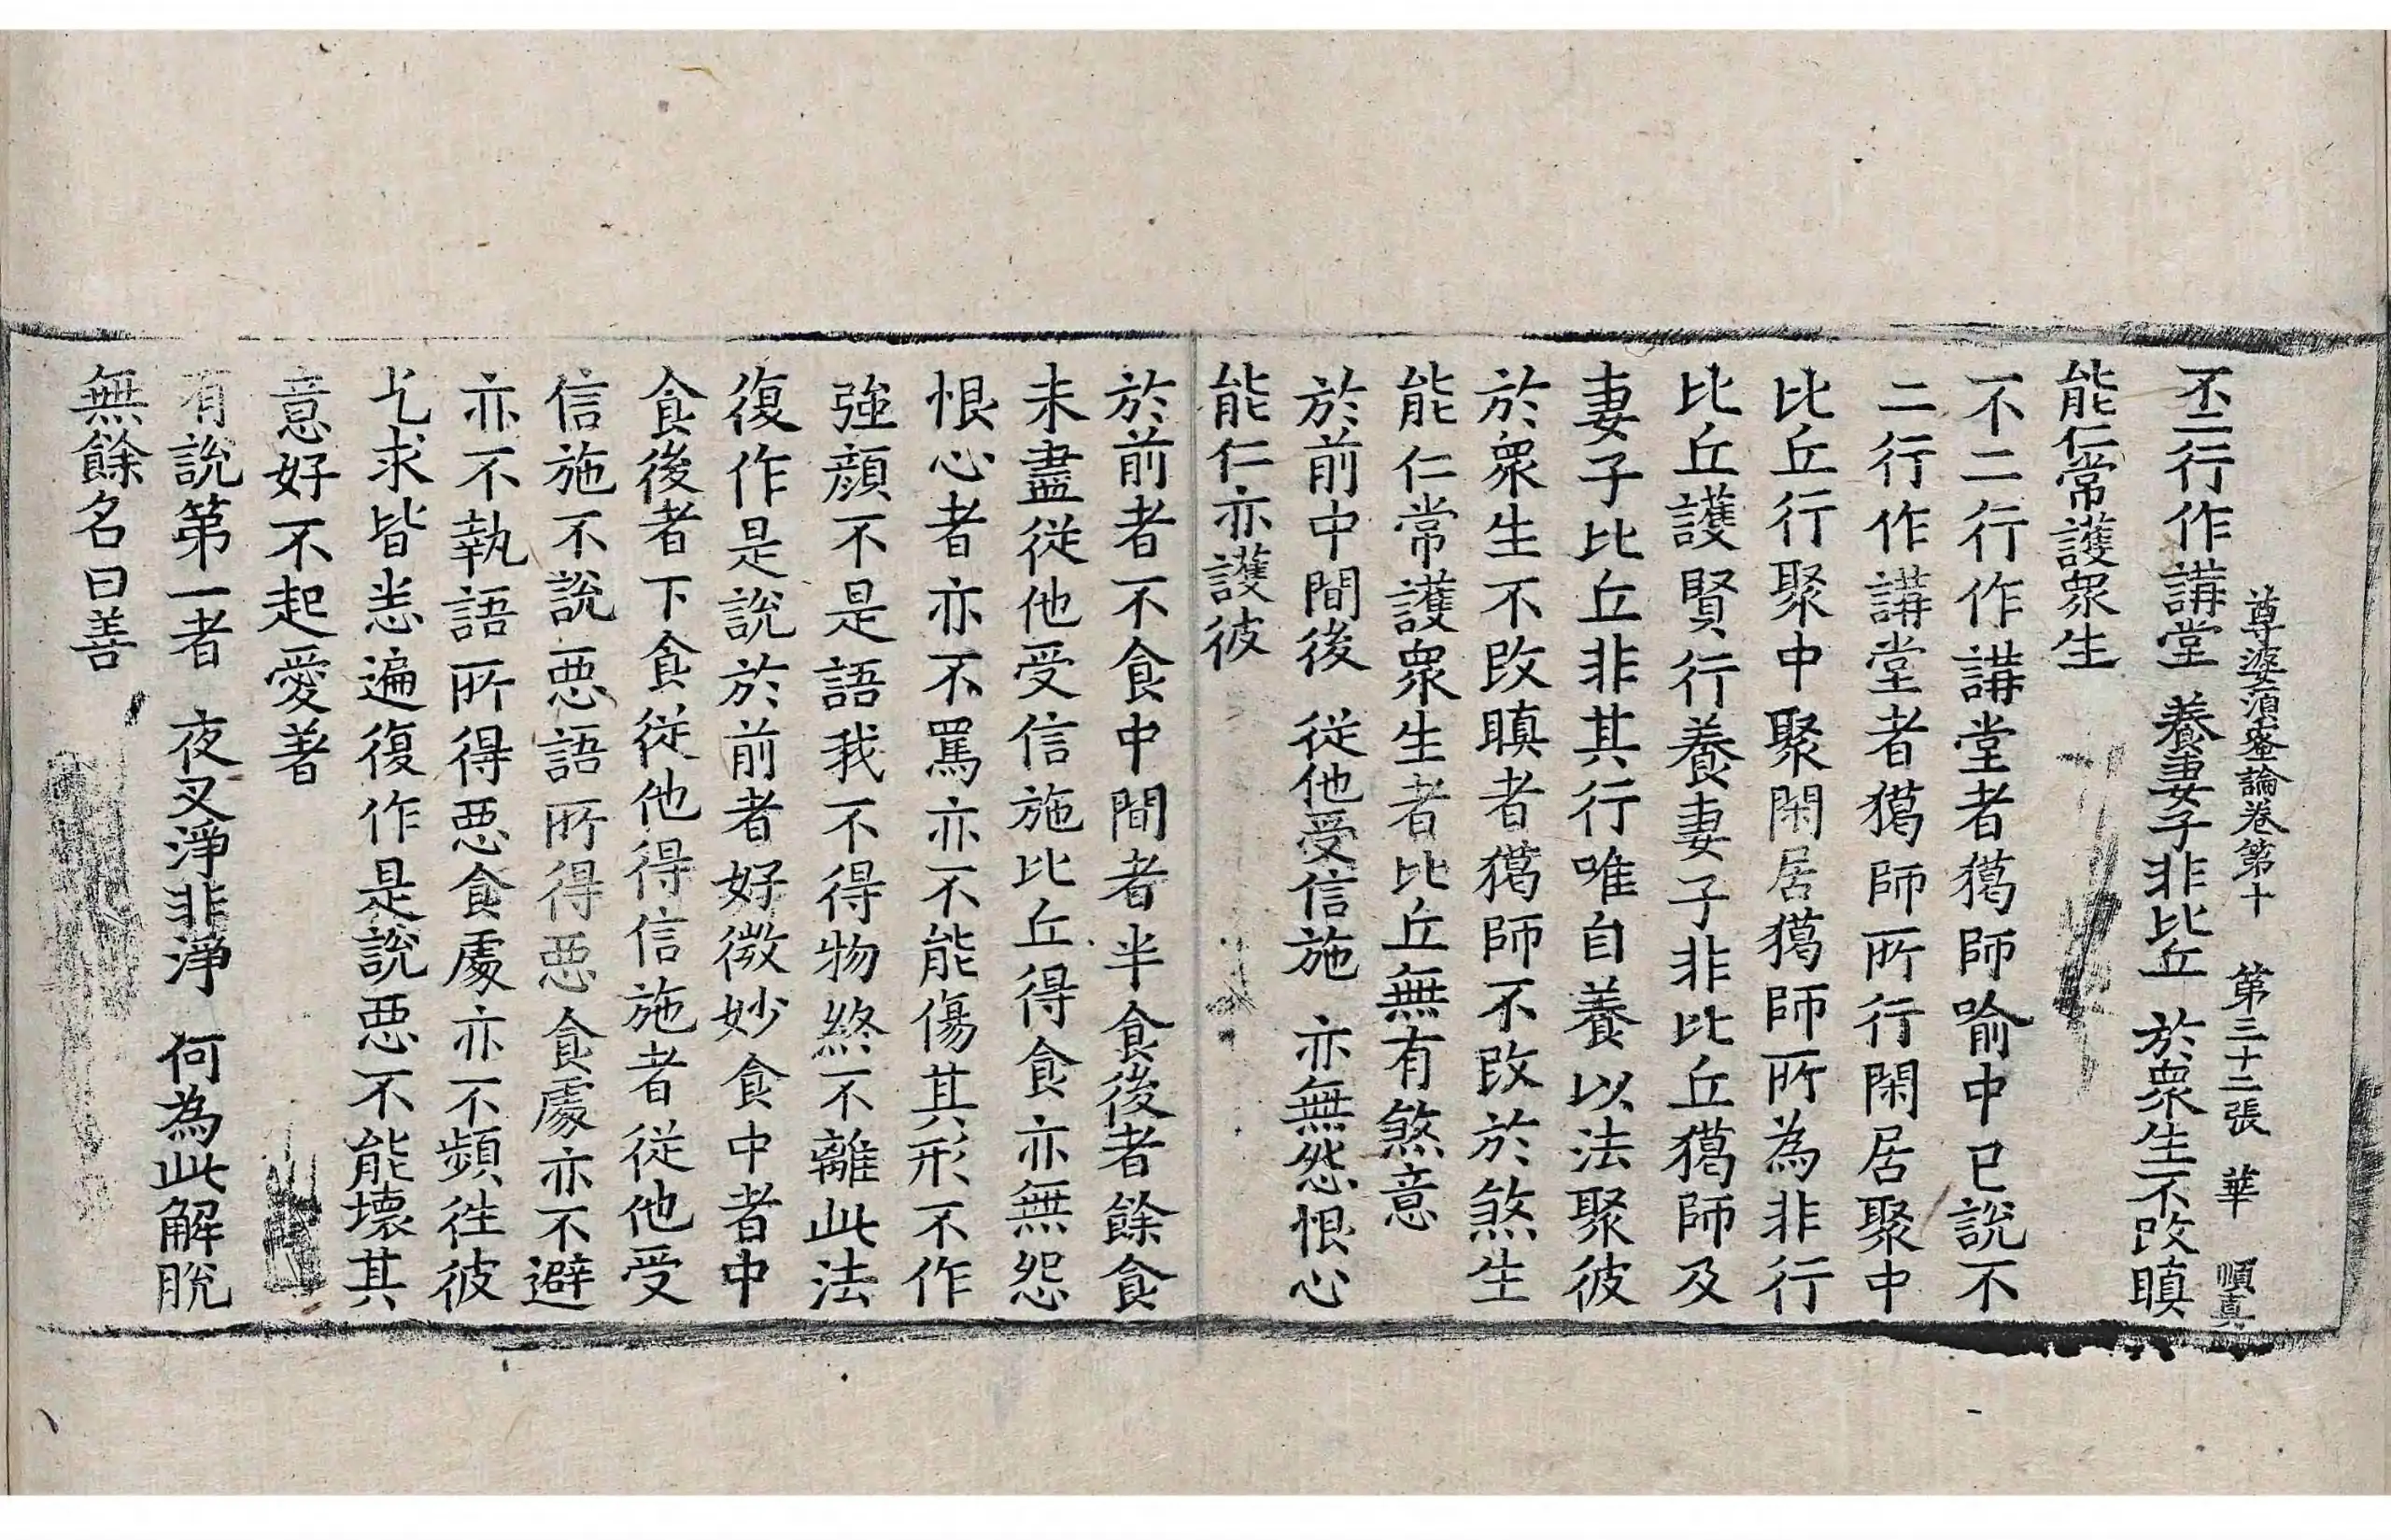 尊婆須蜜論卷第十　第三十二張　華　順真
不二行作講堂　養妻子非比丘　於衆生不改瞋
能仁常護衆生
不二行作講堂者獦師喻中已說不
二行作講堂者獦師所行閑居聚中
比丘行聚中聚閑居獦師所為非行
比丘護賢行養妻子非比丘獦師及
妻子比丘非其行唯自養以法聚彼
於衆生不改瞋者獦師不改於煞生
能仁常護衆生者比丘無有煞意
於前中間後　從他受信施　亦無怨恨心
能仁亦護彼
於前者不食中間者半食後者餘食
未盡從他受信施比丘得食亦無怨
恨心者亦不罵亦不能傷其形不作
強顔不是語我不得物終不離此法
復作是說於前者好微妙食中者中
食後者下食從他得信施者從他受
信施不說惡語所得惡食處亦不避
亦不執語所得惡食處亦不頻徃彼
乞求皆悉遍復作是說惡不能壞其
意好不起愛著
有說第一者　夜叉淨非淨　何為此解脫
無餘名曰善